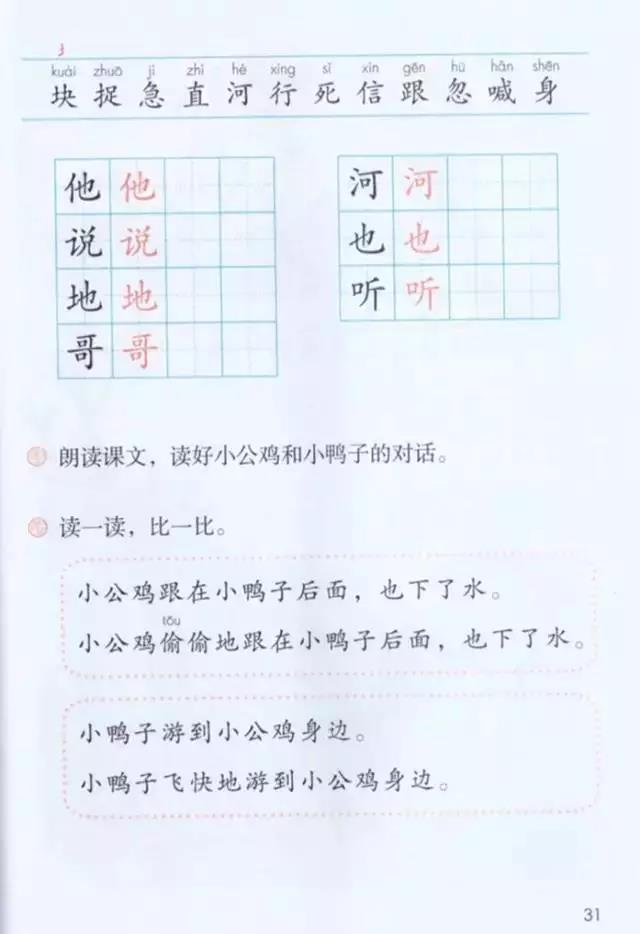 kuài zhuō jí zhí hé xíng sǐ xìn gēn hū hǎn shēn
块 捉 急 直 河 行 死 信 跟 忽 喊 身
他 他 河 河
说 说 也 也
地 地 听 听
哥 哥
朗读课文，读好小公鸡和小鸭子的对话。
读一读，比一比。
小公鸡跟在小鸭子后面，也下了水。
tōu
小公鸡偷偷地跟在小鸭子后面，也下了水。
小鸭子游到小公鸡身边。
小鸭子飞快地游到小公鸡身边。
31